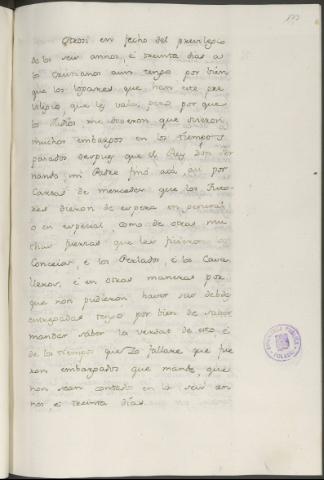 Otrosi en fecho del previlegio
de los seis annos, é treinta dias a
los Cristianos aun tengo por bien
que los logares que han este pre
vilegio que les vala, pero por que
los Judios me dixeron que ovieron
muchos embargos en los tiempos
pasados despues que el Rey Don Fer
nando mi Padre finó acá asi por
Cartas de mercedes que los Reies
dieron de espera en general
o en especial, como de otras mu
chas fuerzas que les ficieron
Conceios, é los Perlados, é los Cava
lleros, é en otras maneras por
que non pudieron haver sus debdas
entregadas tengo por bien de
mandar saber la verdat de esto é
de los tiempos que Io fallare que fue
ron embargados que mande que
non sean contado en los seis an
nos, é treinta dias.